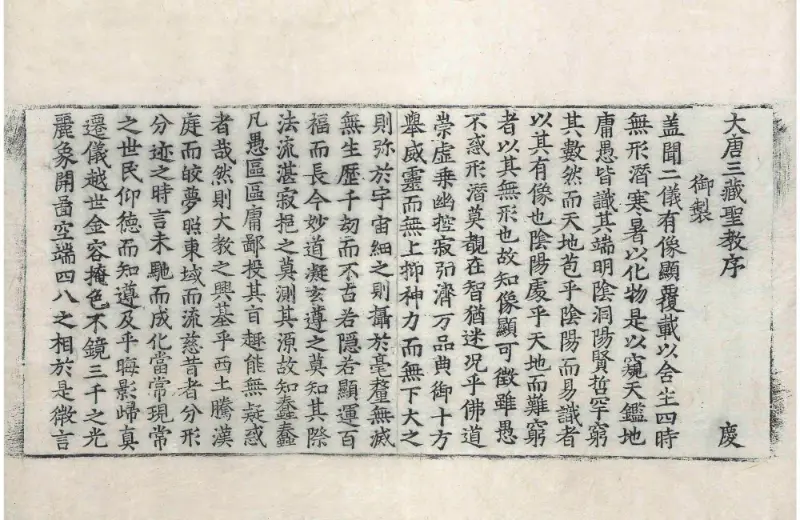 大唐三藏聖教序 慶
御製
盖聞二儀有像顯覆載以含生四時
無形潜寒暑以化物是以窺天鑑地
庸愚皆識其端明陰洞陽賢哲罕窮
其數然而天地苞乎陰陽而易識者
以其有像也陰陽處乎天地而難窮
者以其無形也故知像顯可徵雖愚
不惑形潜莫覩在智猶迷况乎佛道
崇虛乘幽控寂弘濟万品典御十方
舉威靈而無上抑神力而無下大之
則弥於宇宙細之則攝於毫釐無滅
無生歷千劫而不古若隱若顯運百
福而長今妙道凝玄遵之莫知其際
法流湛寂挹之莫測其源故知蠢蠢
凡愚區區庸鄙投其旨趣能無疑惑
者哉然則大教之興基乎西土騰漢
庭而皎夢照東域而流慈昔者分形
分迹之時言未馳而成化當常現常
之世民仰德而知遵及乎晦影歸真
遷儀越世金容掩色不鏡三千之光
麗象開啚空端四八之相於是微言